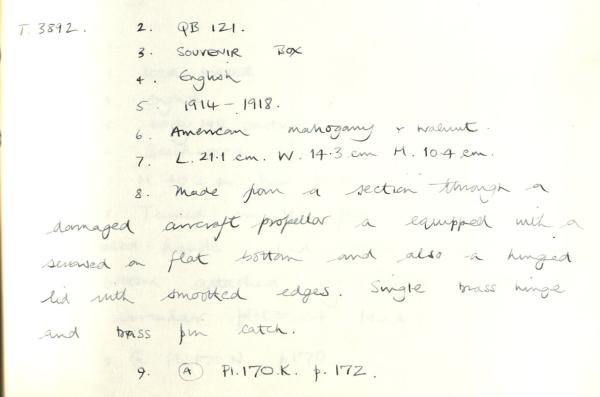 T. 3892. 2. QB 121.
3. SOUVENIR BOX
4. English
5. 1914 – 1918.
6. American mahogany + walnut.
7. L. 21.1 cm. W. 14.3 cm H. 10.4 cm.
8. Made from a section through a
damaged aircraft propellor a equipped with a
screwed on flat bottom and also a hinged
lid with smoothed edges. Single brass hinge
and brass pin catch.
9. (A) Pl. 170.K. p. 172.